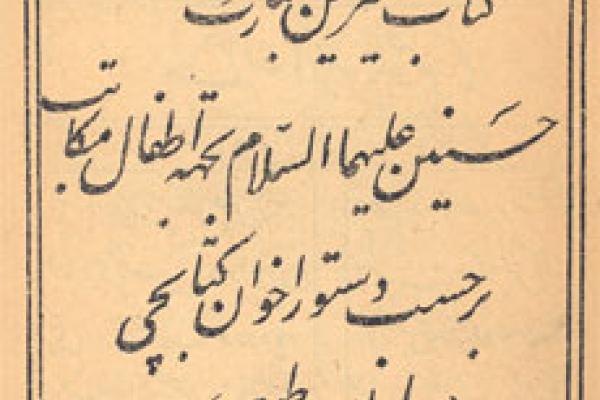 کتاب شیرین عبارت
حسنین علیهما السلام بجهة اطفال مکاتب
برحسب دستور اخوان کتابچی